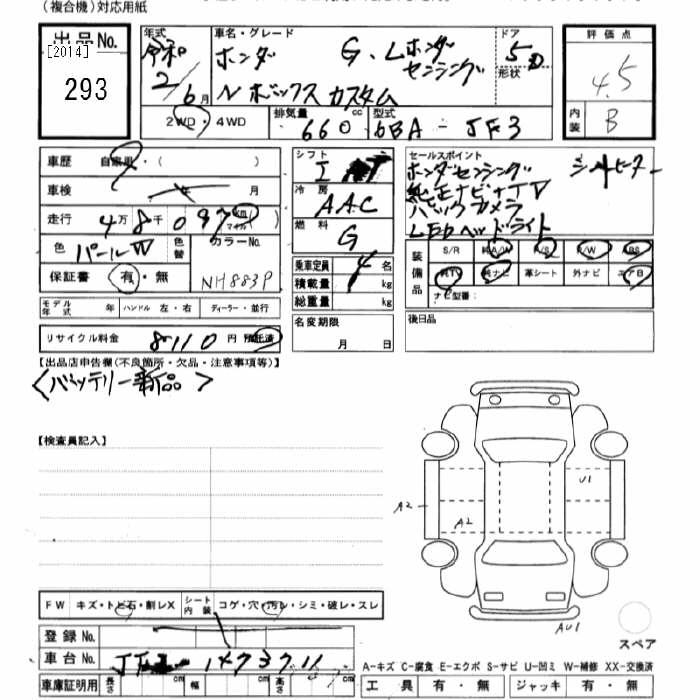 (複合機)対応用紙
出品No.
[2014]
293
年式
令和
2/6月
車名・グレード
ホンダ G・Lホンダ
センシング
N ボックス カスタム
ドア
5D
形状
評価点
4.5
内装 B
2WD・4WD
排気量 cc
660
型式
6BA-JF3
車歴 自家用・( )
車検 年 月
走行 4万8千097 km マイル
色 パールW 色替 カラーNo.
NH883P
保証書 有・無
モデル年式 年 ハンドル 左・右 ディーラー・並行
リサイクル料金 8110円 預託済
シフト I
冷房 AAC
燃料 G
乗車定員 4名
積載量 kg
総重量 kg
名変期限
月 日
セールスポイント
ホンダセンシング シートヒーター
純正ナビナTV
バックカメラ
LEDヘッドライト
装備品
S/R 純A/W P/S P/W ABS
純TV 純ナビ 革シート 外ナビ エアB
ナビ型番:
後日品
【出品店申告欄(不良箇所・欠品・注意事項等)】
<バッテリー新品>
【検査員記入】
A2
A2
U1
AU1
スペア
FW キズ・トビ石・割レX シート内装 コゲ・穴・汚レ・シミ・破レ・スレ
登録No.
車台No.
車庫証明用 長さ cm 幅 cm 高さ cm
A-キズ C-腐食 E-エクボ S-サビ U-凹ミ W-補修 XX-交換済
工具 有・無 ジャッキ 有・無